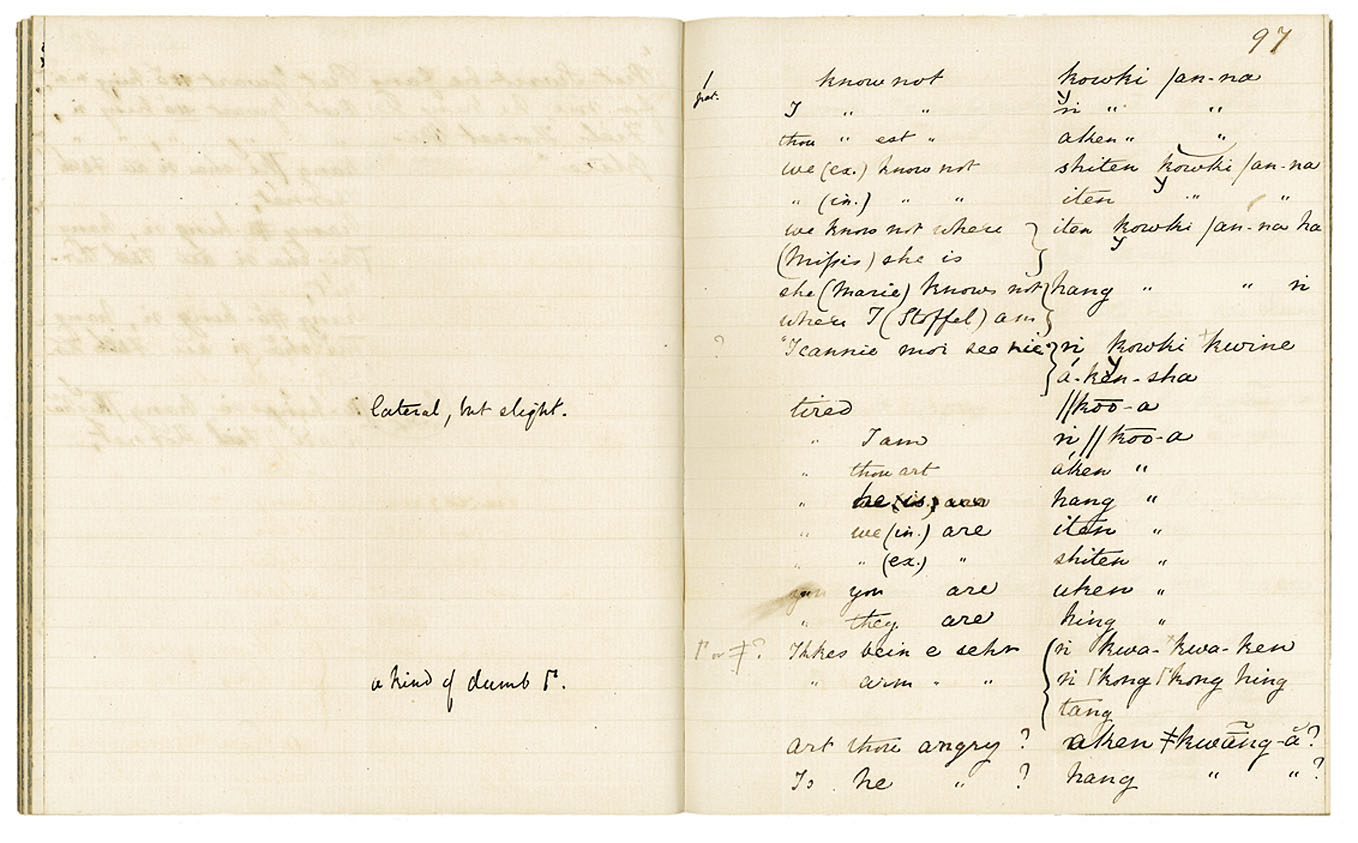 lateral, but slight.
a kind of dumb Γ.
97
know not kowki /an-na
I " " ṅ " "
thou " est " aken " "
we (ex.) know not shiten kowki /an-na
" (in.) " " iten " "
we know not where } iten kowki /an-na ha
(Missis) she is
she (Marie) knows not } hang " " ṅ
where I (Stoffel) am
? "I cannie moi see nie" } ṅ kowki ǂkwine
á-ken-sha
tired //k̄o̅o̅-a
" I am ṅ //k̄o̅o̅-a
" thou art áken "
" he is hang "
" we (in.) are iten "
" " (ex.) " shiten "
you are uken "
" they are hing "
Γ or ǂ? Ikkes bein e sehr ṅ kwa-ǂkwa-ken
" arm " " ṅ Γkong Γkong hing
tang
art thou angry ? aken ǂkwãng-ă?
Is he " ? hang " " ?